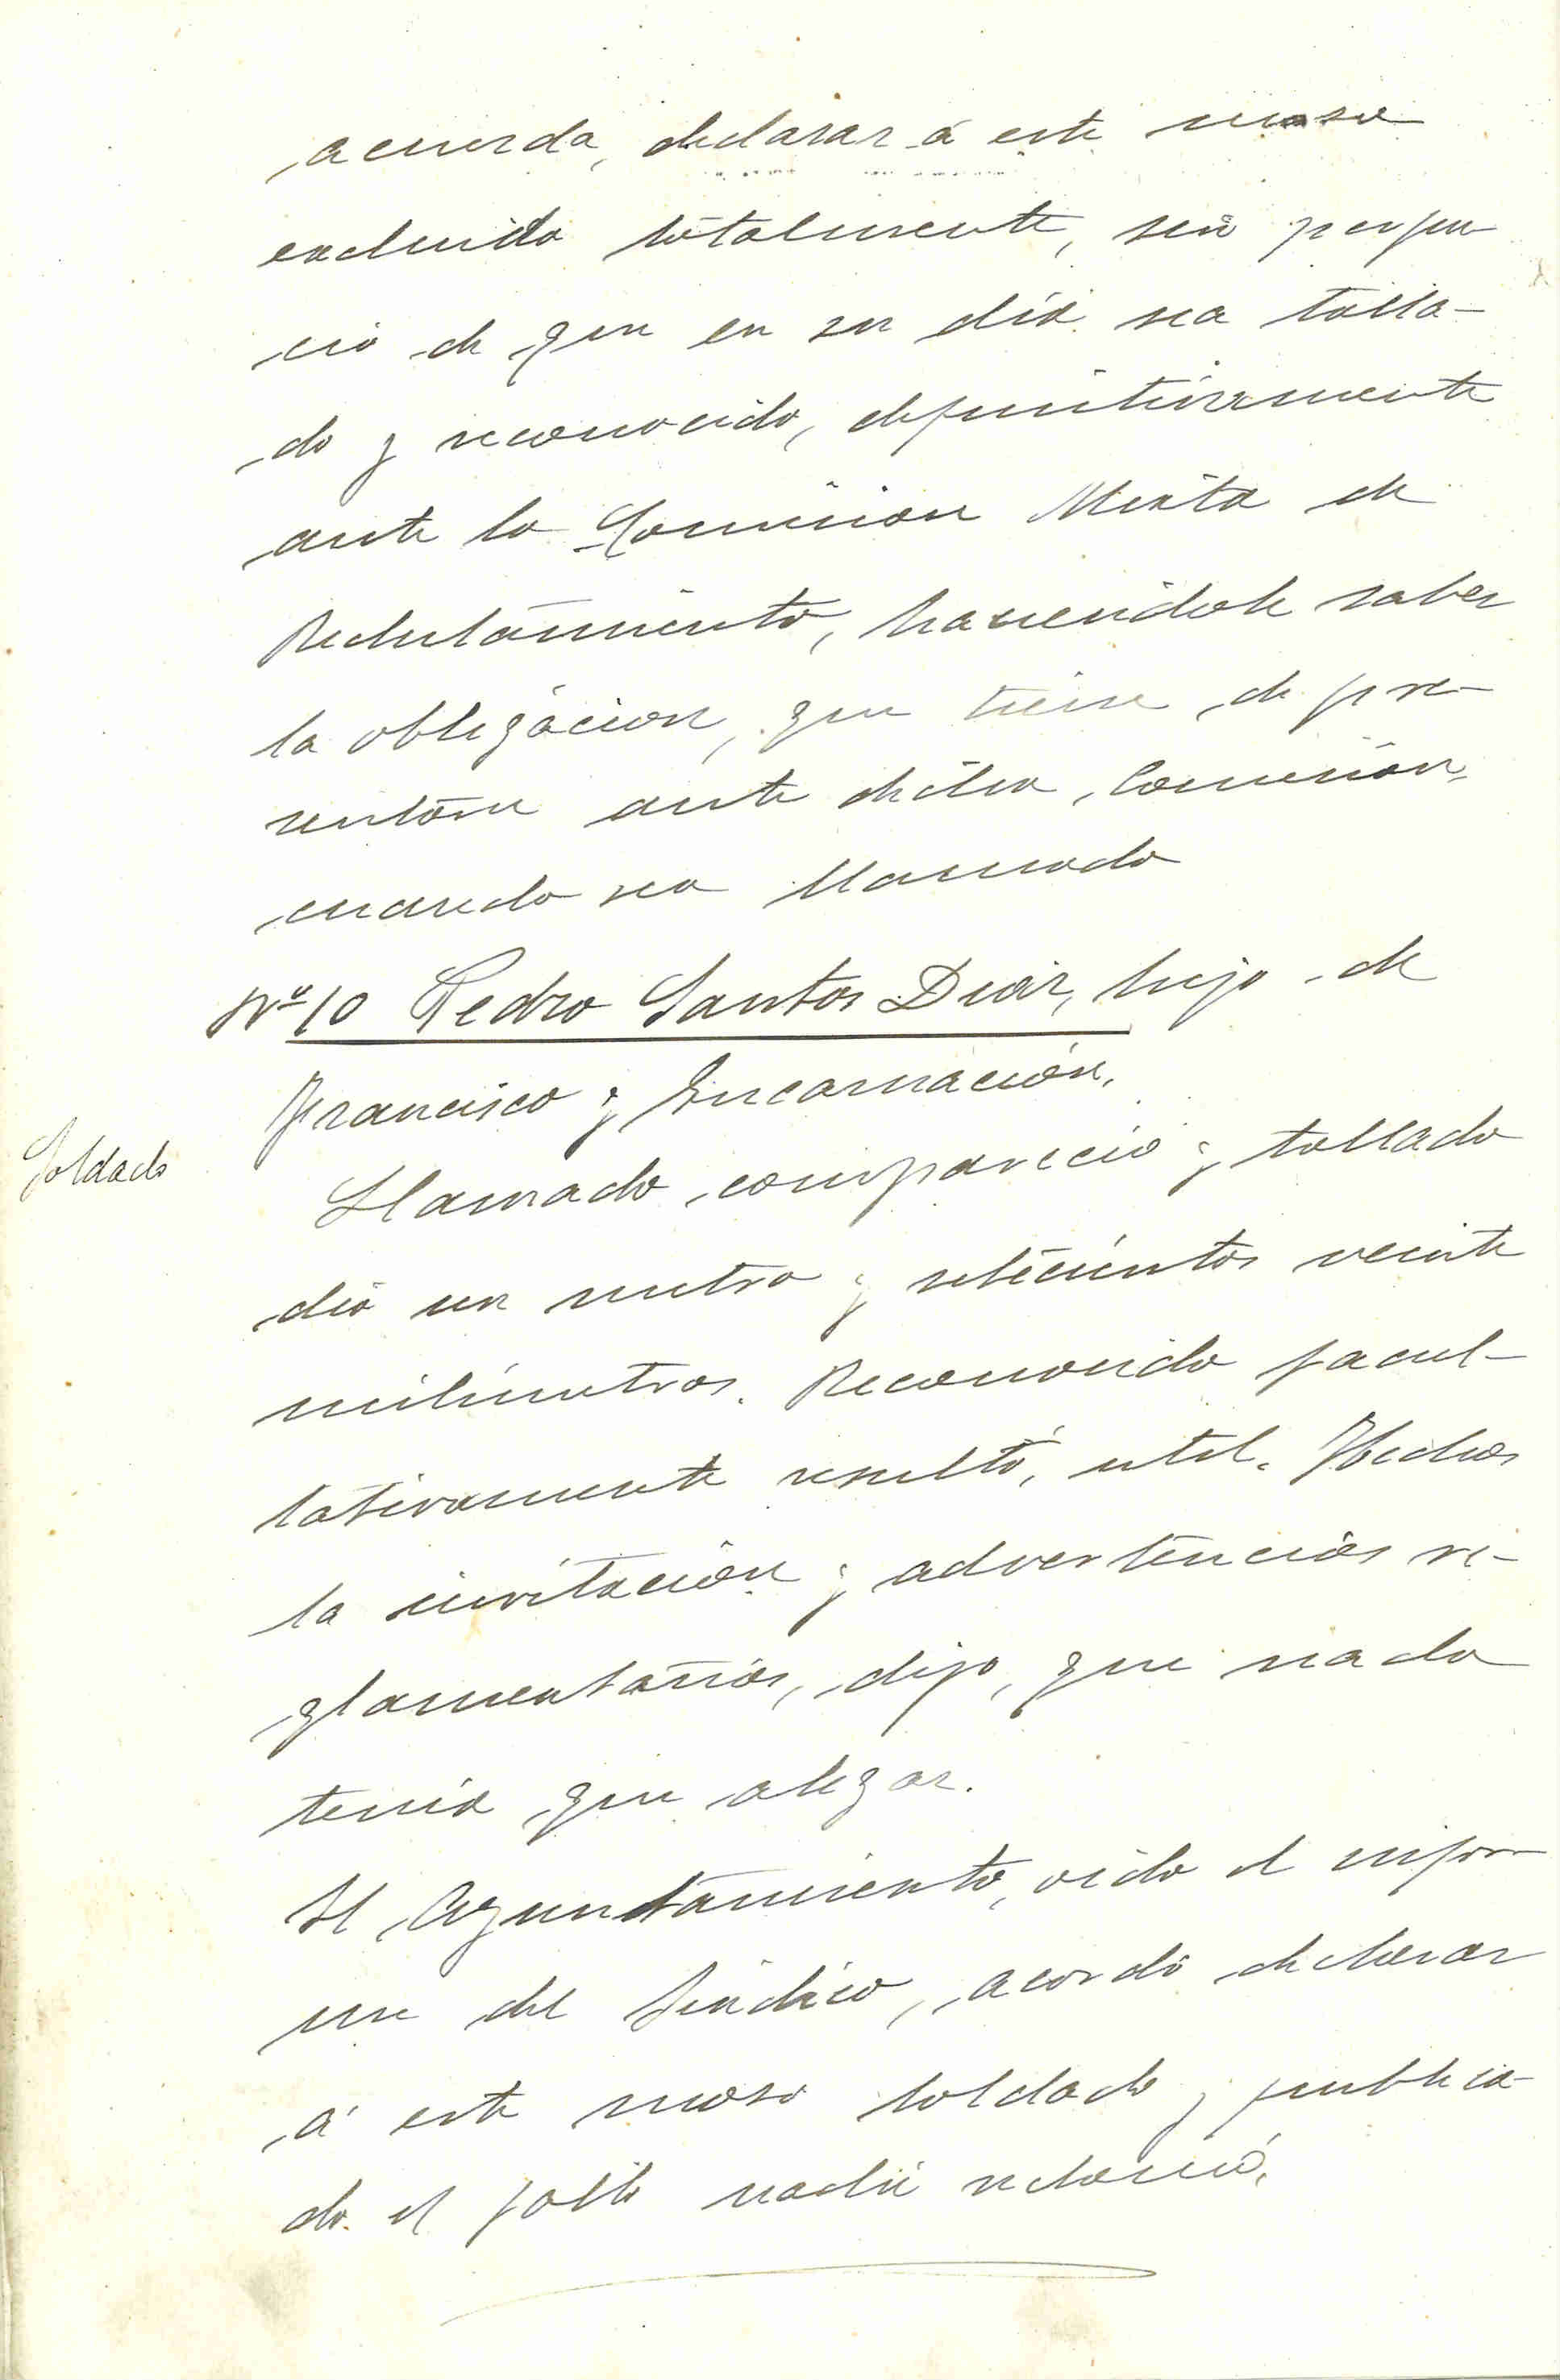 acuerda, declarar á este moso
excluido totalmente, sin perjui
cio de que en su dia sea talla-
do y reconocido, definitivamente
ante la Comision Mixta de
Reclutamiento, haciendole saber
la obligacion, que tiene de pre-
sentarse ante dicha Comisión,
cuando sea llamado
Nº 10 Pedro Santos Diaz, hijo de
Francisco y Encarnación.
Soldado
Llamado compareció y tallado
dió un metro y setecientos veinte
milimetros. Reconocido facul-
tativamente resultó, util. Hechas
la invitación y advertencias re-
glamentarias, dijo, que nada
tenia que alegar.
El Ayuntamiento, oido el infor
me del Sindico, acordó declarar
á este moso soldado y publica-
do el fallo nadie reclamó.